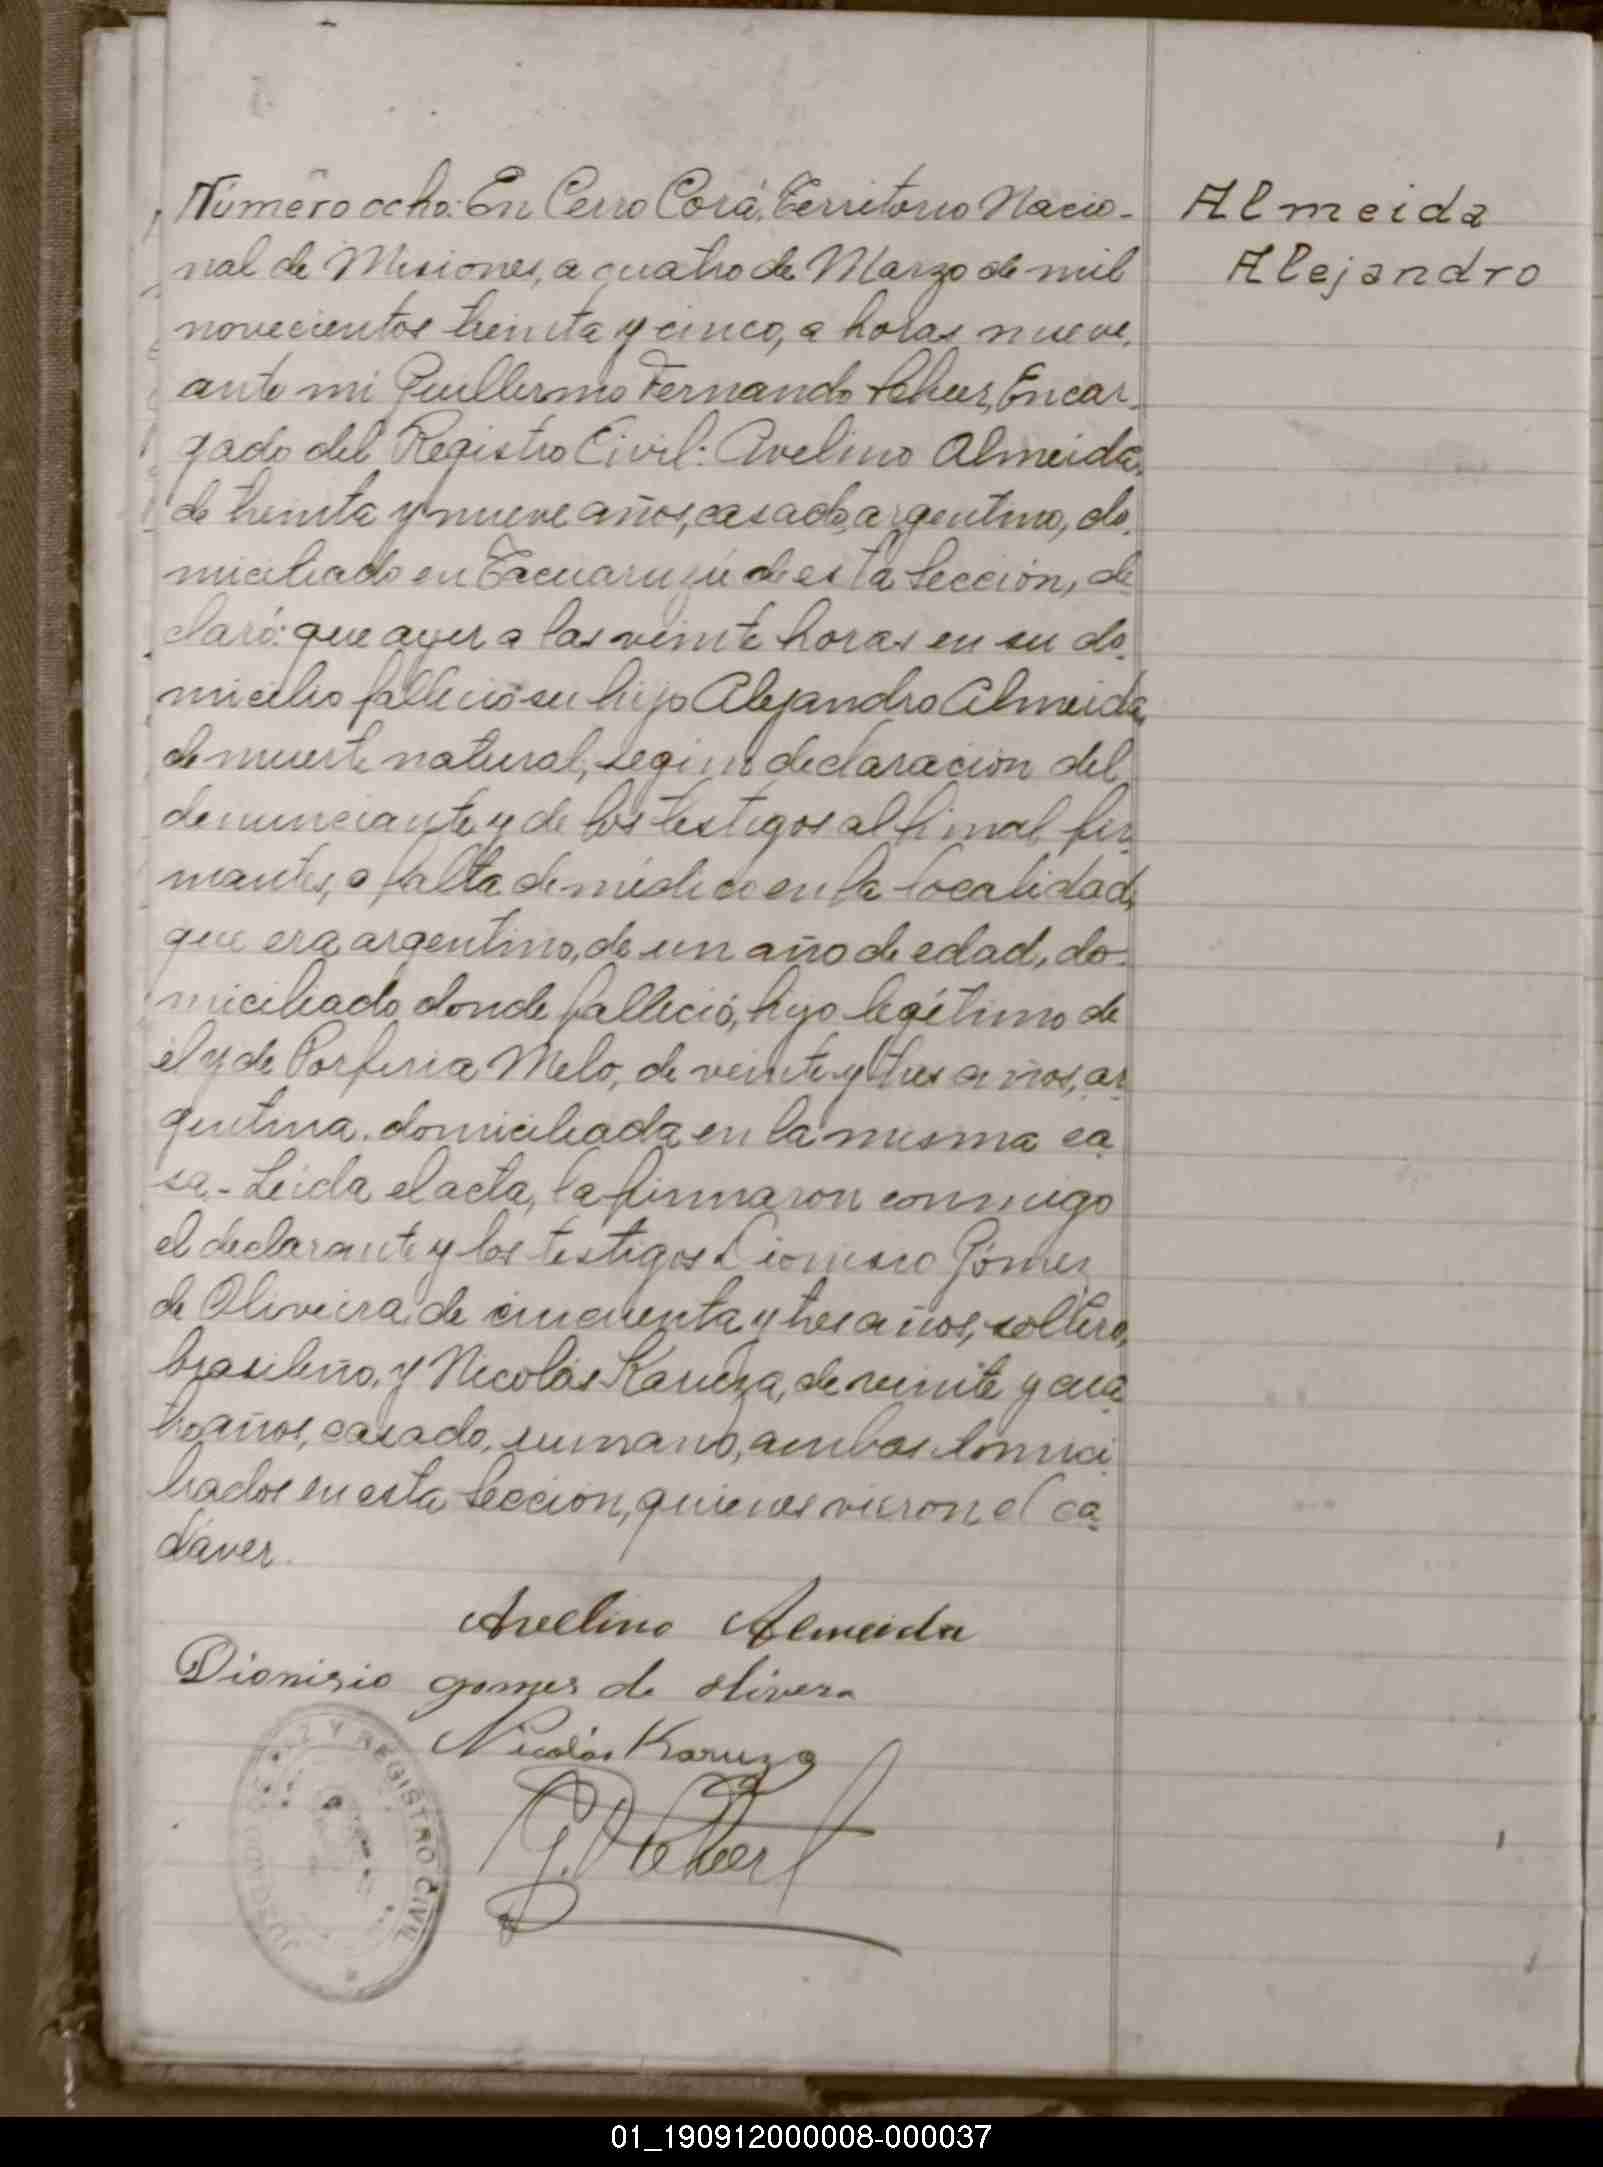 Número ocho: En Cerro Corá, Territorio Nacio-
nal de Misiones, a cuatro de Marzo de mil
novecientos treinta y cinco, a horas nueve,
ante mi Guillermo Fernando Encar-
gado del Registro Civil: Avelino Almeida,
de treinta y nueve años, casado, argentino, do-
miciliado en Tacuaruzú de esta Sección, de-
claró: que ayer a las veinte horas en su do-
micilio falleció su hijo Alejandro Almeida,
de muerte natural, según declaración del
denunciante y de los testigos al final fir-
mantes, a falta de médico en la localidad,
que era argentino, de un año de edad, do-
miciliado donde falleció, hijo legítimo de
él y de Porfiria Melo, de veinte y tres años, ar-
gentina, domiciliada en la misma ca-
sa.- Leida el acta, la firmaron conmigo
el declarante y los testigos Dionisio Gómez
de Oliveira, de cincuenta y tres años, soltero,
brasileño, y Nicolás Karuza, de veinte y cua-
tro años, casado, rumano, ambos domici-
liados en esta Sección, quienes vieron el ca-
dáver.
Almeida
Alejandro
Avelino Almeida
Dionisio gomes de olivera
Nicolás Karuza
G.
JUZ Y REGISTRO CIVIL
01_190912000008-000037